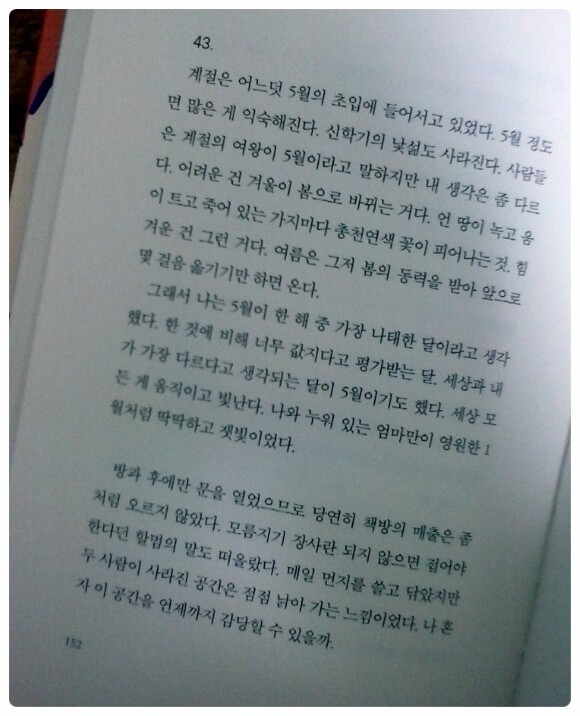 43.
계절은 어느덧 5월의 초입에 들어서고 있었다. 5월 정도
면 많은 게 익숙해진다. 신학기의 낯섦도 사라진다. 사람들
은 계절의 여왕이 5월이라고 말하지만 내 생각은 좀 다르
다. 어려운 건 겨울이 봄으로 바뀌는 거다. 언 땅이 녹고 움
이 트고 죽어 있는 가지마다 총천연색 꽃이 피어나는 것. 힘
겨운 건 그런 거다. 여름은 그저 봄의 동력을 받아 앞으로
몇 걸음 옮기기만 하면 온다.
그래서 나는 5월이 한 해 중 가장 나태한 달이라고 생각
했다. 한 것에 비해 너무 값지다고 평가받는 달. 세상과 내
가 가장 다르다고 생각되는 달이 5월이기도 했다. 세상 모
든 게 움직이고 빛난다. 나와 누워 있는 엄마만이 영원한 1
월처럼 딱딱하고 잿빛이었다.
방과 후에만 문을 열었으므로 당연히 책방의 매출은 좀
처럼 오르지 않았다. 모름지기 장사란 되지 않으면 접어야
한다던 할멈의 말도 떠올랐다. 매일 먼지를 쓸고 닦았지만
두 사람이 사라진 공간은 점점 낡아 가는 느낌이었다. 나 혼
자 이 공간을 언제까지 감당할 수 있을까.
152